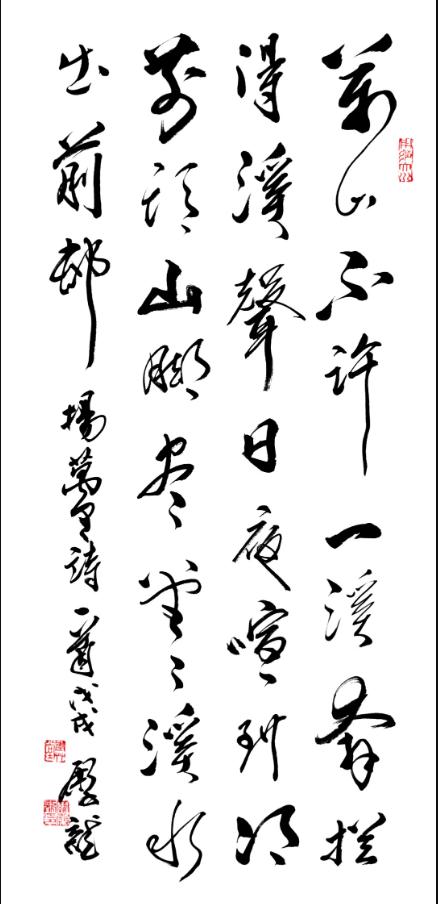 萬山不許一溪奔拦
得溪聲日夜喧到得
前頭山腳尽堂〻溪水
出前邨 楊萬里詩一首 戊戌 龍